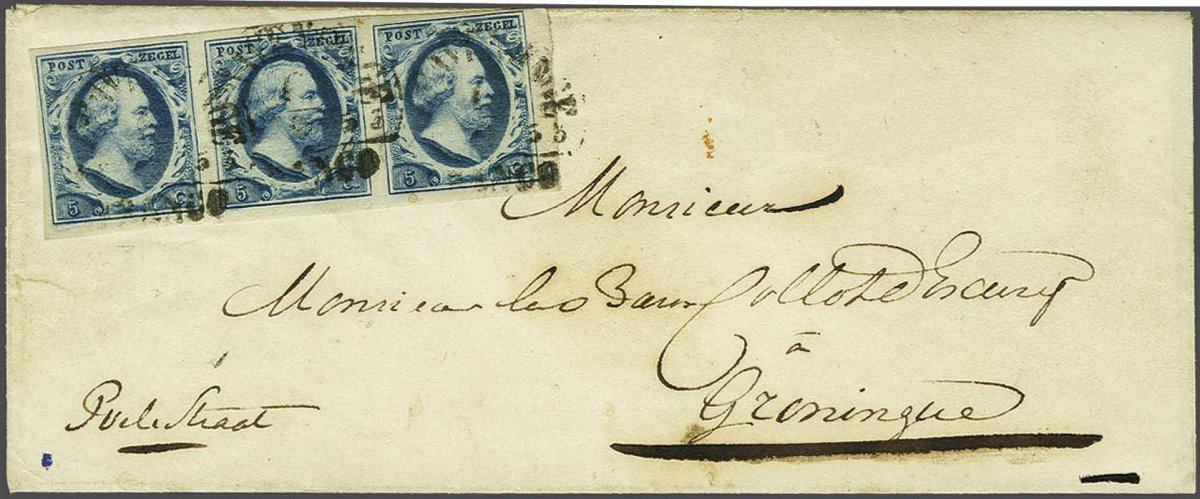 POST ZEGEL POST ZEGEL POST ZEGEL
5 C 5 C 5 C
Monsieur
Monsieur le Baron Collot d'Escury
à
Groningue
Poele Straat